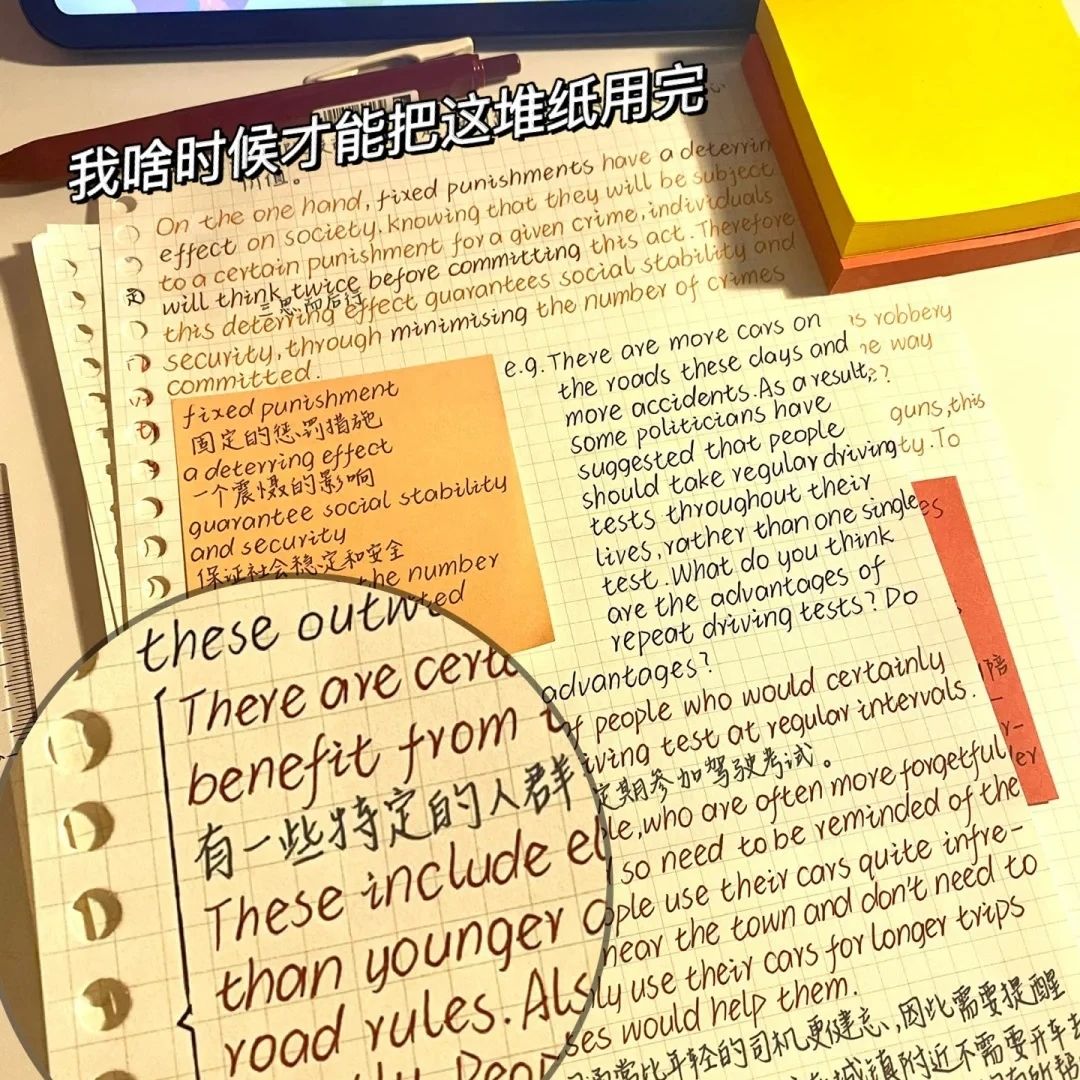 我啥时候才能把这堆纸用完
价值。
On the one hand, fixed punishments have a deterrin
effect on society, knowing that they will be subject
to a certain punishment for a given crime, individuals
will think twice before committing this act. Therefore
三思而后行
this deterring effect guarantees social stability and
security, through minimising the number of crimes
committed.
fixed punishment
固定的惩罚措施
a deterring effect
一个震慑的影响
guarantee social stability
and security
保证社会稳定和安全
the number
ted
e.g. There are more cars on
the roads these days and
more accidents. As a result,
some politicians have
suggested that people
should take regular driving
tests throughout their
lives, rather than one single
test. What do you think
are the advantages of
repeat driving tests? Do
advantages?
is robbery
he way
?
guns, this
ty. To
es
陪
r-
ler
these outw
There are certa
benefit from
有一些特定的人群
These include el
than younger
road rules. Als
of people who would certainly
iving test at regular intervals.
定期参加驾驶考试。
le, who are often more forgetful
so need to be reminded of the
ople use their cars quite infre-
near the town and don't need to
ily use their cars for longer trips
ses would help them.
通常比年轻的司机更健忘,因此需要提醒
城镇附近不需要开车去